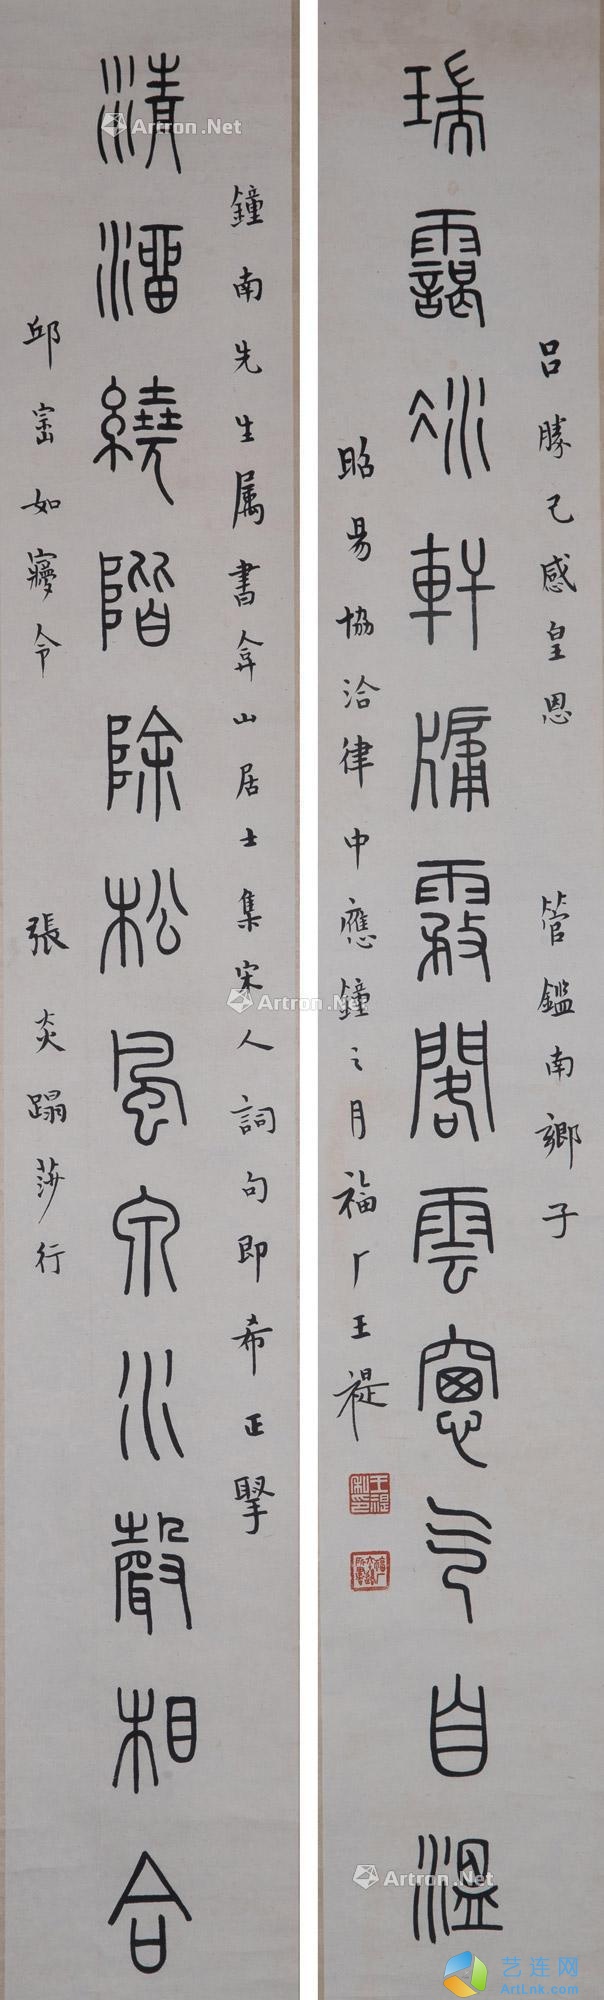 瑞靄冰軒牖霧閣雲窗气自溫
呂勝己感皇恩 管鑑南鄉子
昭易協洽律中應鐘之月福厂王禔
王禔私印
清溜繞階除松風泉水聲相合
鐘南先生属書弇山居士集宋人詞句即希正掔
邱崈如寱令 張炎蹋莎行
Artron.Net
Artron.Net
Artron.Net
艺连网
ArtLnk.com